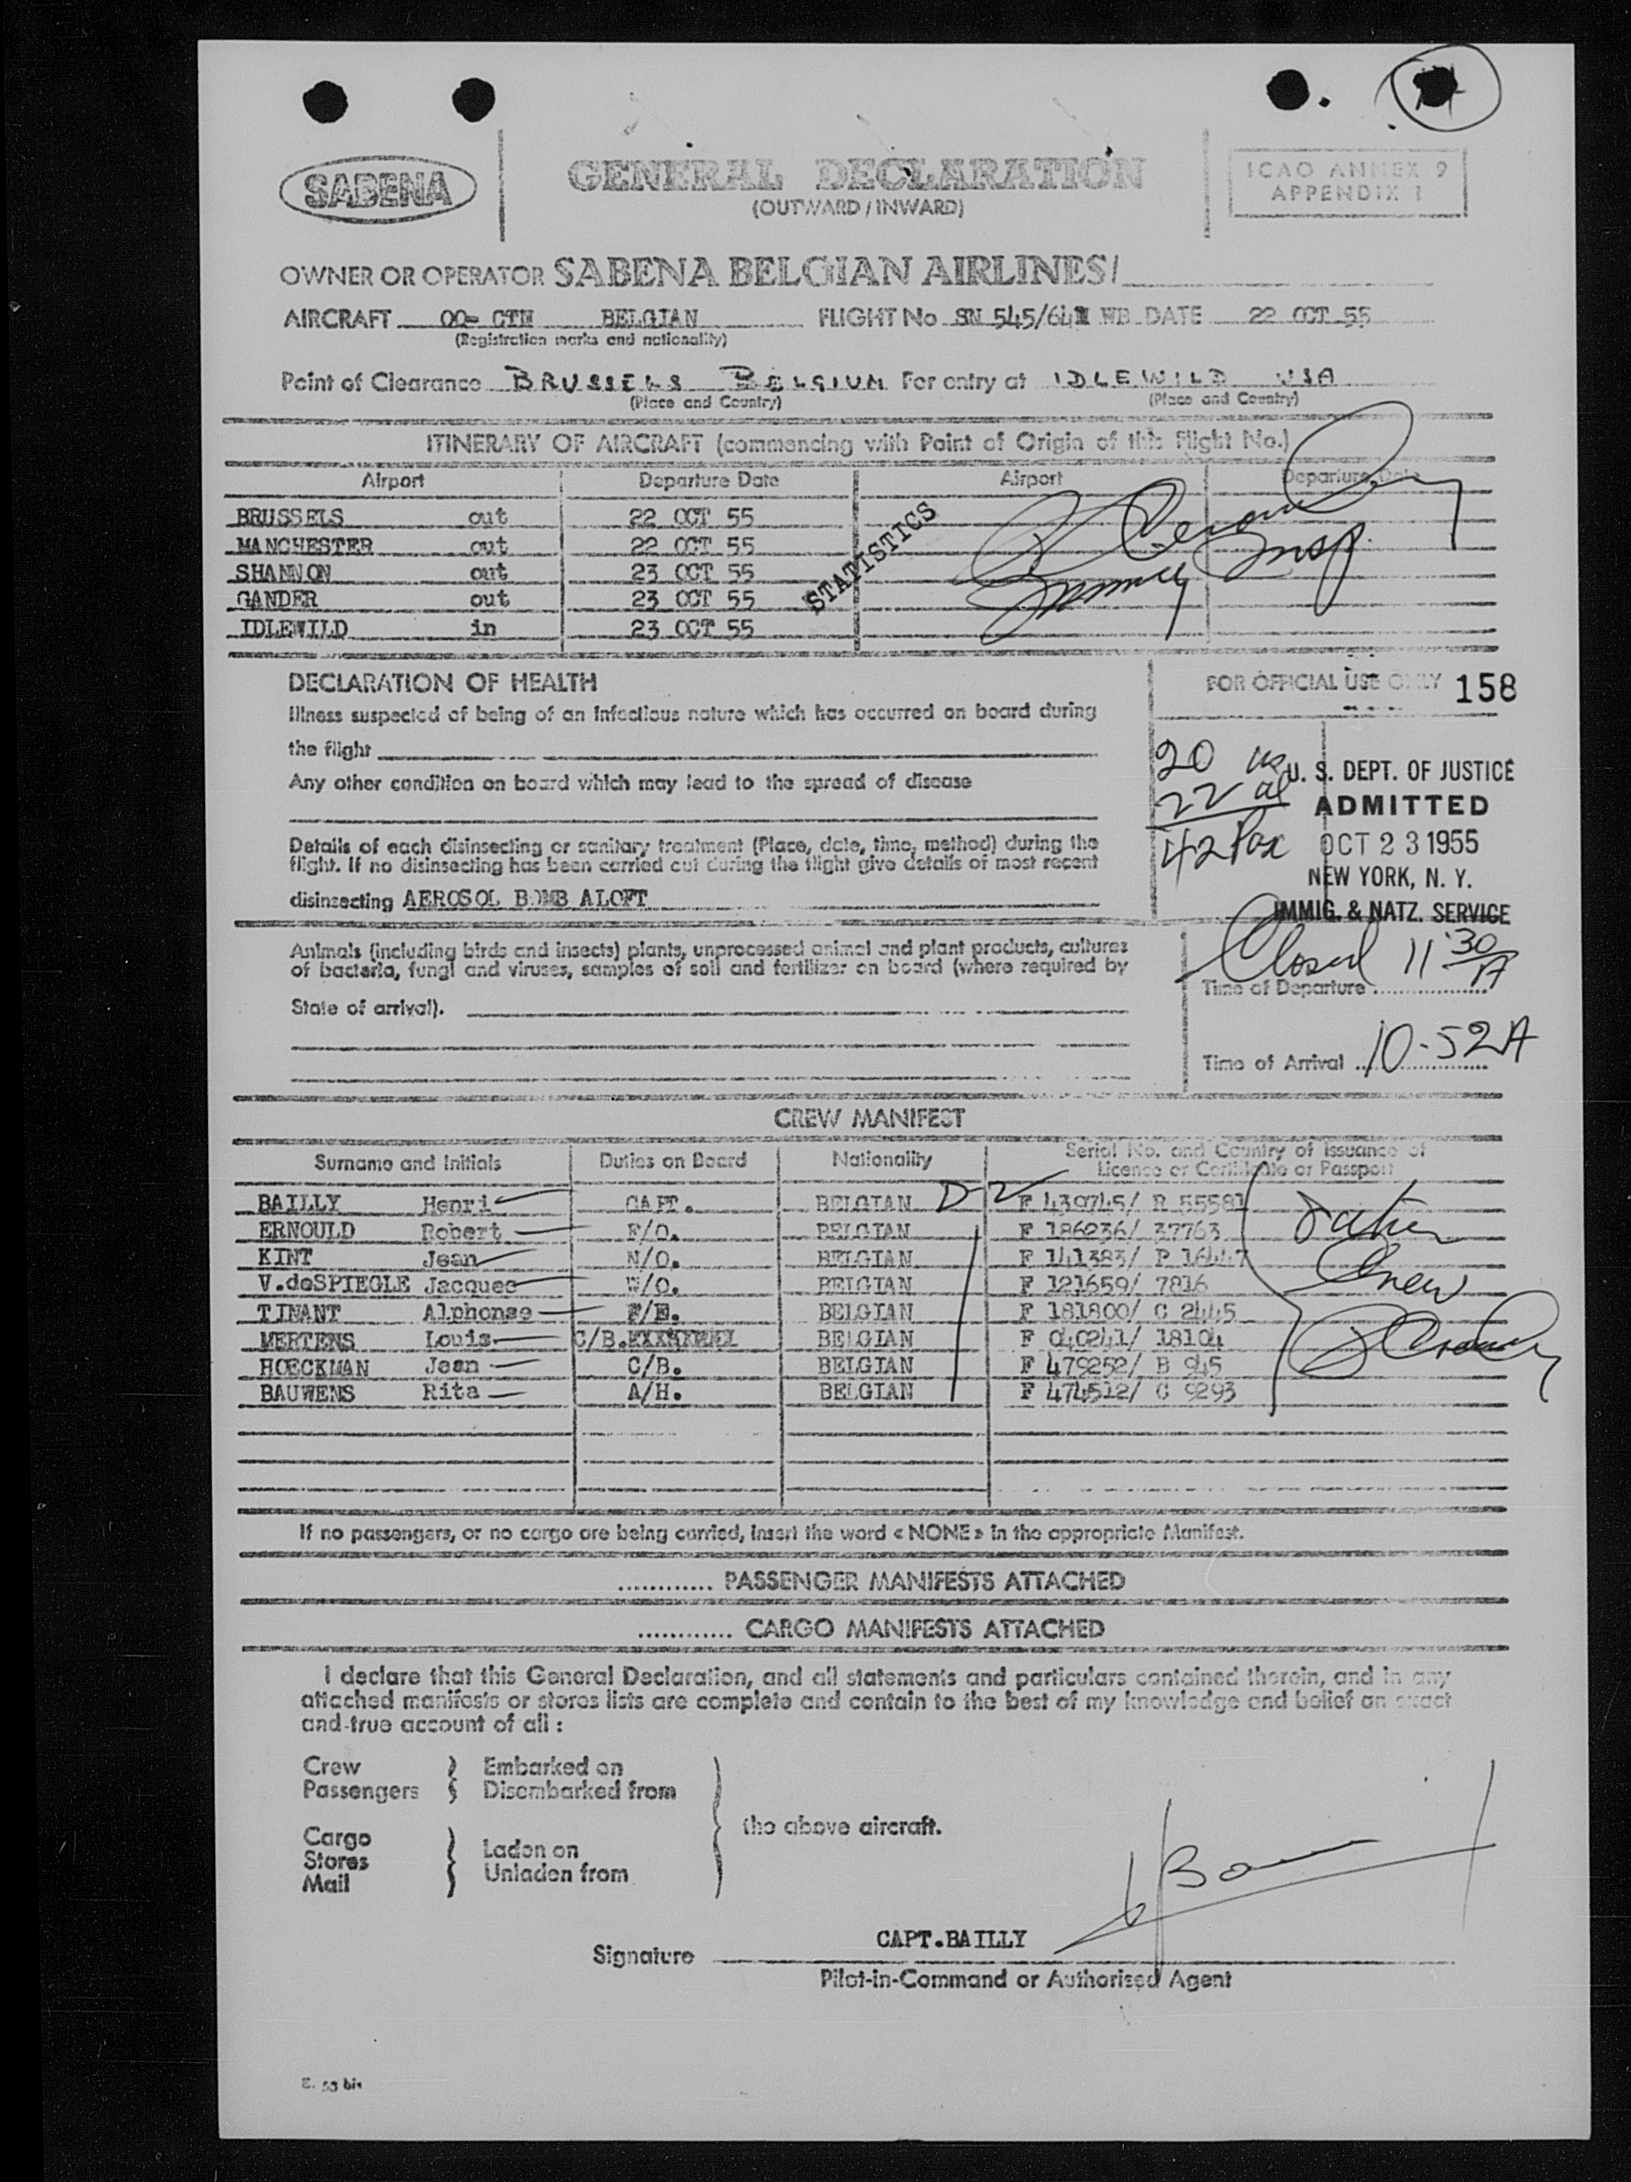 SABENA
GENERAL DECLARATION
(OUTWARD / INWARD)
ICAO ANNEX 9
APPENDIX 1
OWNER OR OPERATOR SABENA BELGIAN AIRLINES/
AIRCRAFT OO- CTH BELGIAN FLIGHT No SN 545/64 WB DATE 22 OCT 55
(Registration marks and nationality)
Point of Clearance BRUSSELS BELGIUM For entry at IDLEWILD USA
(Place and Country) (Place and Country)
ITINERARY OF AIRCRAFT (commencing with Point of Origin of this Flight No.)
Airport Departure Date Airport Departure Date
BRUSSELS out 22 OCT 55
MANCHESTER out 22 OCT 55
SHANNON out 23 OCT 55
GANDER out 23 OCT 55
IDLEWILD in 23 OCT 55
STATISTICS
Insp
DECLARATION OF HEALTH
Illness suspected of being of an infectious nature which has occurred on board during
the flight
Any other condition on board which may lead to the spread of disease
Details of each disinsecting or sanitary treatment (Place, date, time, method) during the
flight. If no disinsecting has been carried out during the flight give details of most recent
disinsecting AEROSOL BOMB ALOFT
FOR OFFICIAL USE ONLY 158
20 us
22 al
42 Pax
U. S. DEPT. OF JUSTICE
ADMITTED
OCT 23 1955
NEW YORK, N. Y.
IMMIG. & NATZ. SERVICE
Animals (including birds and insects) plants, unprocessed animal and plant products, cultures
of bacteria, fungi and viruses, samples of soil and fertilizer on board (where required by
State of arrival).
Closed 11 30 A
Time of Departure
Time of Arrival 10-52A
CREW MANIFEST
Surname and Initials Duties on Board Nationality Serial No. and Country of Issuance of
Licence or Certificate or Passport
BAILLY Henri CAPT. BELGIAN D-2 F 439745/ B 55581
ERNOULD Robert F/O. BELGIAN F 186236/ 37763
KINT Jean N/O. BELGIAN F 141383/ P 16447
V.deSPIEGLE Jacques W/O. BELGIAN F 121659/ 7816
TINANT Alphonse F/E. BELGIAN F 181800/ C 2445
MERTENS Louis C/B. BELGIAN F 040241/ 18104
HOECKMAN Jean C/B. BELGIAN F 479252/ B 945
BAUWENS Rita A/H. BELGIAN F 474512/ C 9293
Crew
If no passengers, or no cargo are being carried, insert the word « NONE » in the appropriate Manifest.
............ PASSENGER MANIFESTS ATTACHED
............ CARGO MANIFESTS ATTACHED
I declare that this General Declaration, and all statements and particulars contained therein, and in any
attached manifests or stores lists are complete and contain to the best of my knowledge and belief an exact
and true account of all :
Crew Embarked on
Passengers Disembarked from
the above aircraft.
Cargo
Stores Laden on
Mail Unladen from
CAPT.BAILLY
Signature
Pilot-in-Command or Authorised Agent
E. 53 bis